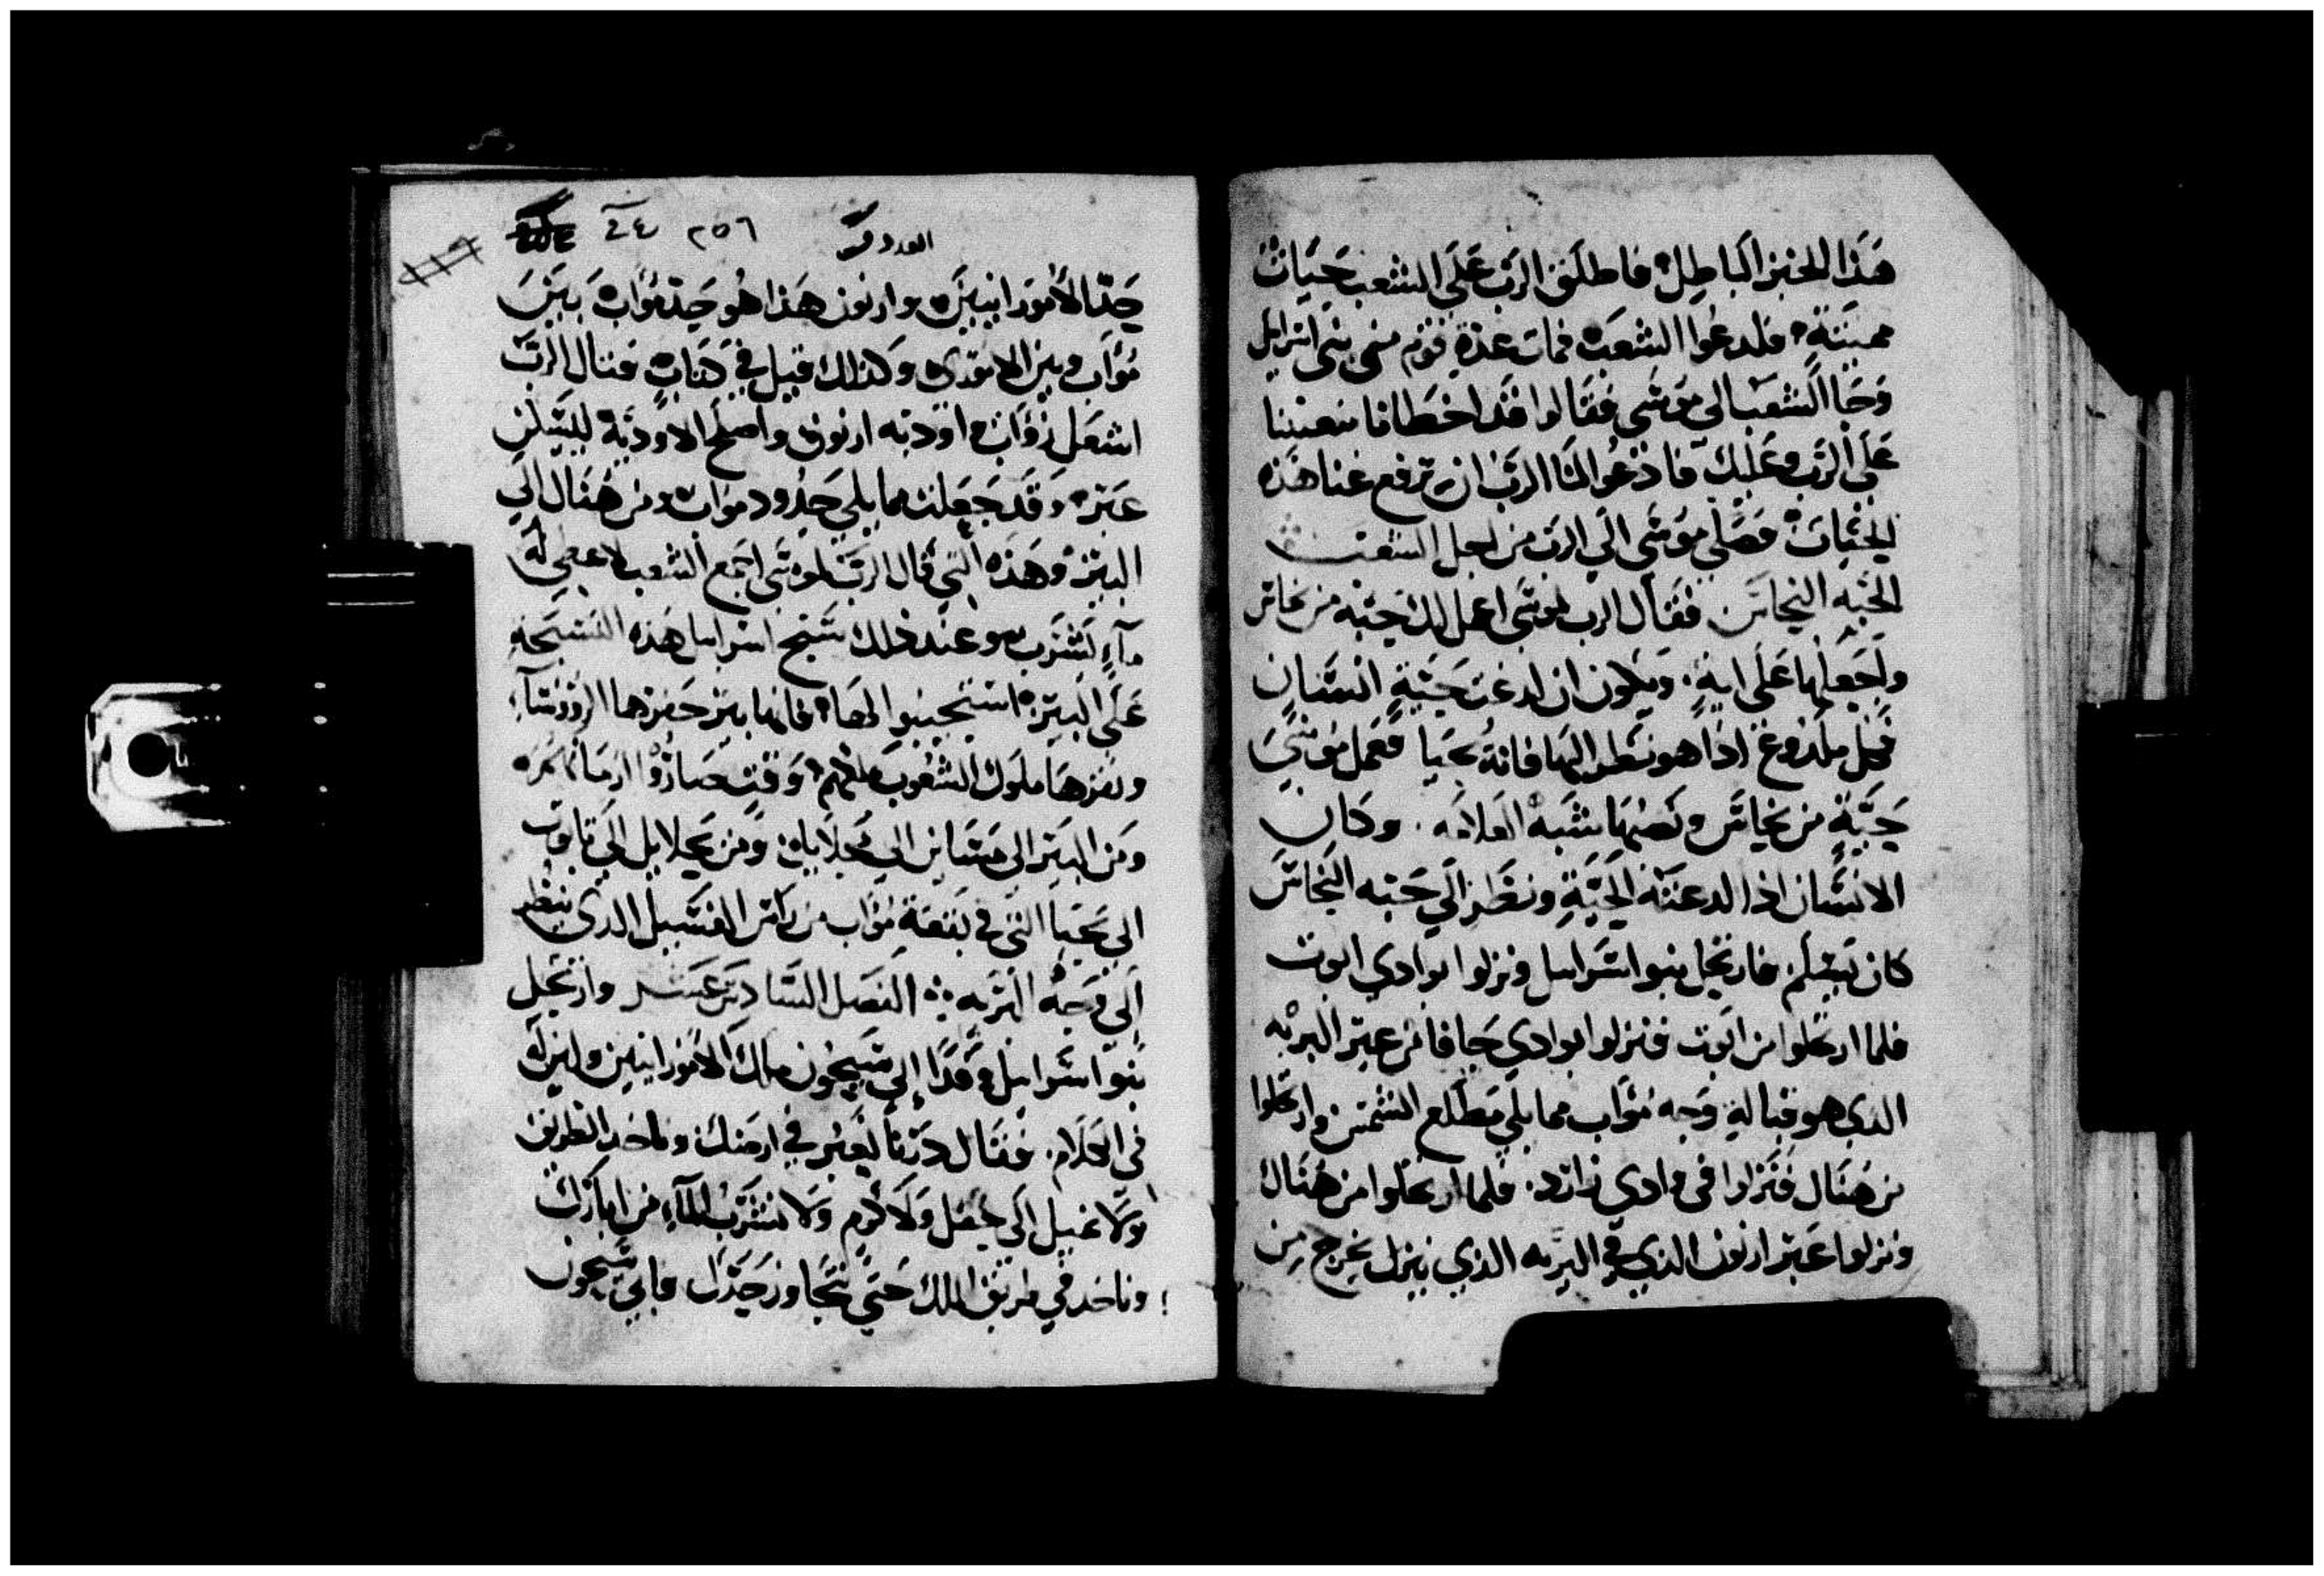 هَذا الخبز الباطِل فاطلق الرَب عَلَي الشعب حَيَات
مميتَة فلدعوا الشعب فمات عدة قوم من بني اسرايل
وَجَا الشعب الي موسَي فقالوا قد اخطانا
عَلَي الرَب وعَليك فادعوا لنا الرب ان ترفع عنا هَذه
الحيَات فصَلي موسَي الَي الرَب من اجل الشعب
الحَيه النحاسَ فقال الرب لموسَي اعمل لك حَيَة من نحاس
واجعَلها عَلَي اية ويكون ان لدغت حَيَةٍ انسَان
فكل ملدوغ اذا هو نظر اليها فانهُ يحيَا فعمل موسَي
حَيَّةٍ من نحاس ونَصبهَا شبَه العلامَه وكان
الانسَان اذا لدعته الحيَّةِ ونظر الَي حَيه النحاسَ
كان يسَلم فارتحل بنوا اسَراىىل ونزلوا بوادي ابوت
فلما ارتحلوا من ابوت فنزلوا بوادي جافا من عبر البريه
الدي هو قبالة وَجه مُوَاب مما يلي مَطلع الشمسَ وارتحلوا
من هُنَاك فنَزلوا في وادي زارد فلما ارتحلوا من هُنَاك
ونزلوا عَبر ارنون الذي في البريه الذي ينزل يخرج مِن
العدد ٢٥٦ ٢٤
حَدّ الامورانييَن وارنون هَذا هُو حَد موَاب بَينَ
مُوَاب وبين الاموري وكذلك قيل في كتاب قتال الرَبّ
اشعَل زوَاب اوديه ارنون واصلح الاودية
عَير وقد جَعلت مما يلي حَدُود مواب ومن هُنَاك الَي
البير وهَذه التي قال الرَبّ لموسَي اجمع الشعب لاعطي لهُ
مآءٍ لشرَب وعند ذلك سَبح اسراىىل هَذه التسبحَه
عَلَي البير استجيبوا لهَا فانها بير حَفرها الروسَآء
ونقرهَا ملوك الشعُوب
وَمن البير الي الي محلايل وَمن محلايل الي
الي التي في بقعَة مُوَاب من رَاس الدي ينظر
الَي وَجهُ البريه الفصَل السَادسَ عَشر وارتحل
بنوا اسَراىىل الي سَيحُون ملك الامورانيين
في الكلام فقال لعَبر في ارضك وناخد الطريق
وَلا نميل الَي حقل وَلا كَرم وَلا نشرَبُ المآء من ابيارَك
وناخد في طريق الملك حَتي نتجاوز حَدَّك فابي سَيحون